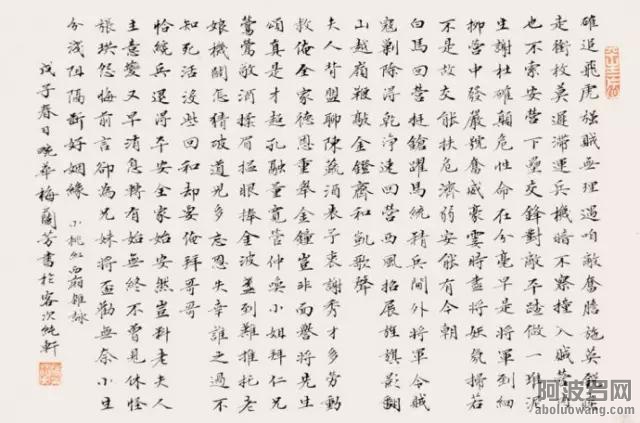 確追飛虎強賊無理過咱敵奮膽施英
走銜枚莫遲滯運兵機暗不察撞入賊營
也不索安營下壘交鋒對敵平踏做一堆泥
生謝杜確顛危性命在分毫早是將軍到細
柳營中發嚴號奮威豪霎時盡將妖氛掃若
不是故交能扶危濟弱安能有今朝
白馬回營挺鎗躍馬統精兵閫外將軍令賊
寇剿除得乾淨速回營西風招展旌旗影翻
山越嶺鞭敲金鐙齊和凱歌聲
夫人背盟聊陳蔬酒表予衷謝秀才多勞動
救俺全家德恩重舉金鐘豈非面譽將先生
頌真是才超孔融量寬管仲喚小姐拜仁兄
鶯鶯敬酒揉眉搵眼捧金波盞到難推托老
娘機關怎猜破道兄多忘恩失幸誰之過不
知死活沒些回和却要俺拜哥哥
恰繞兵退得平安全家始安然豈料老夫人
主意變又早消息轉有始無終不曾見休怪
張珙怨悔前言卻為兄妹將盃勸無奈小生
分淺阻隔斷好姻緣 小桃紅西廂雜詠
戊子春日 畹華梅蘭芳書於客次純軒
阿波羅网
aboluowang.com